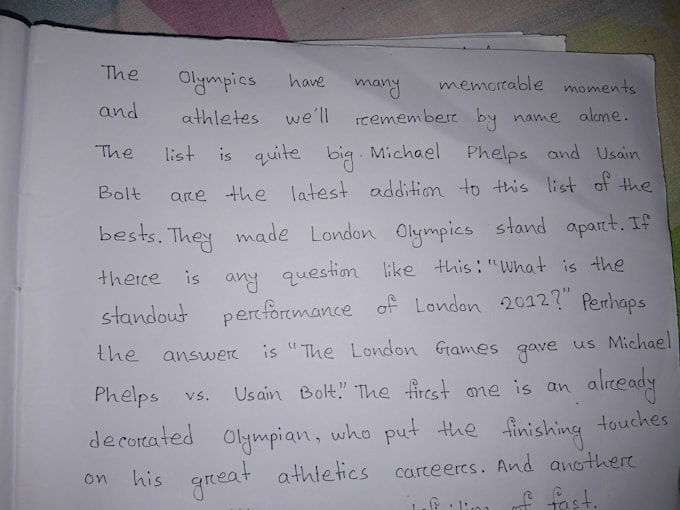 The Olympics have many memorable moments
and athletes we'll remember by name alone.
The list is quite big. Michael Phelps and Usain
Bolt are the latest addition to this list of the
bests. They made London Olympics stand apart. If
there is any question like this: "What is the
standout performance of London 2012?" Perhaps
the answer is "The London Games gave us Michael
Phelps vs. Usain Bolt." The first one is an already
decorated Olympian, who put the finishing touches
on his great athletics careers. And another
of fast.